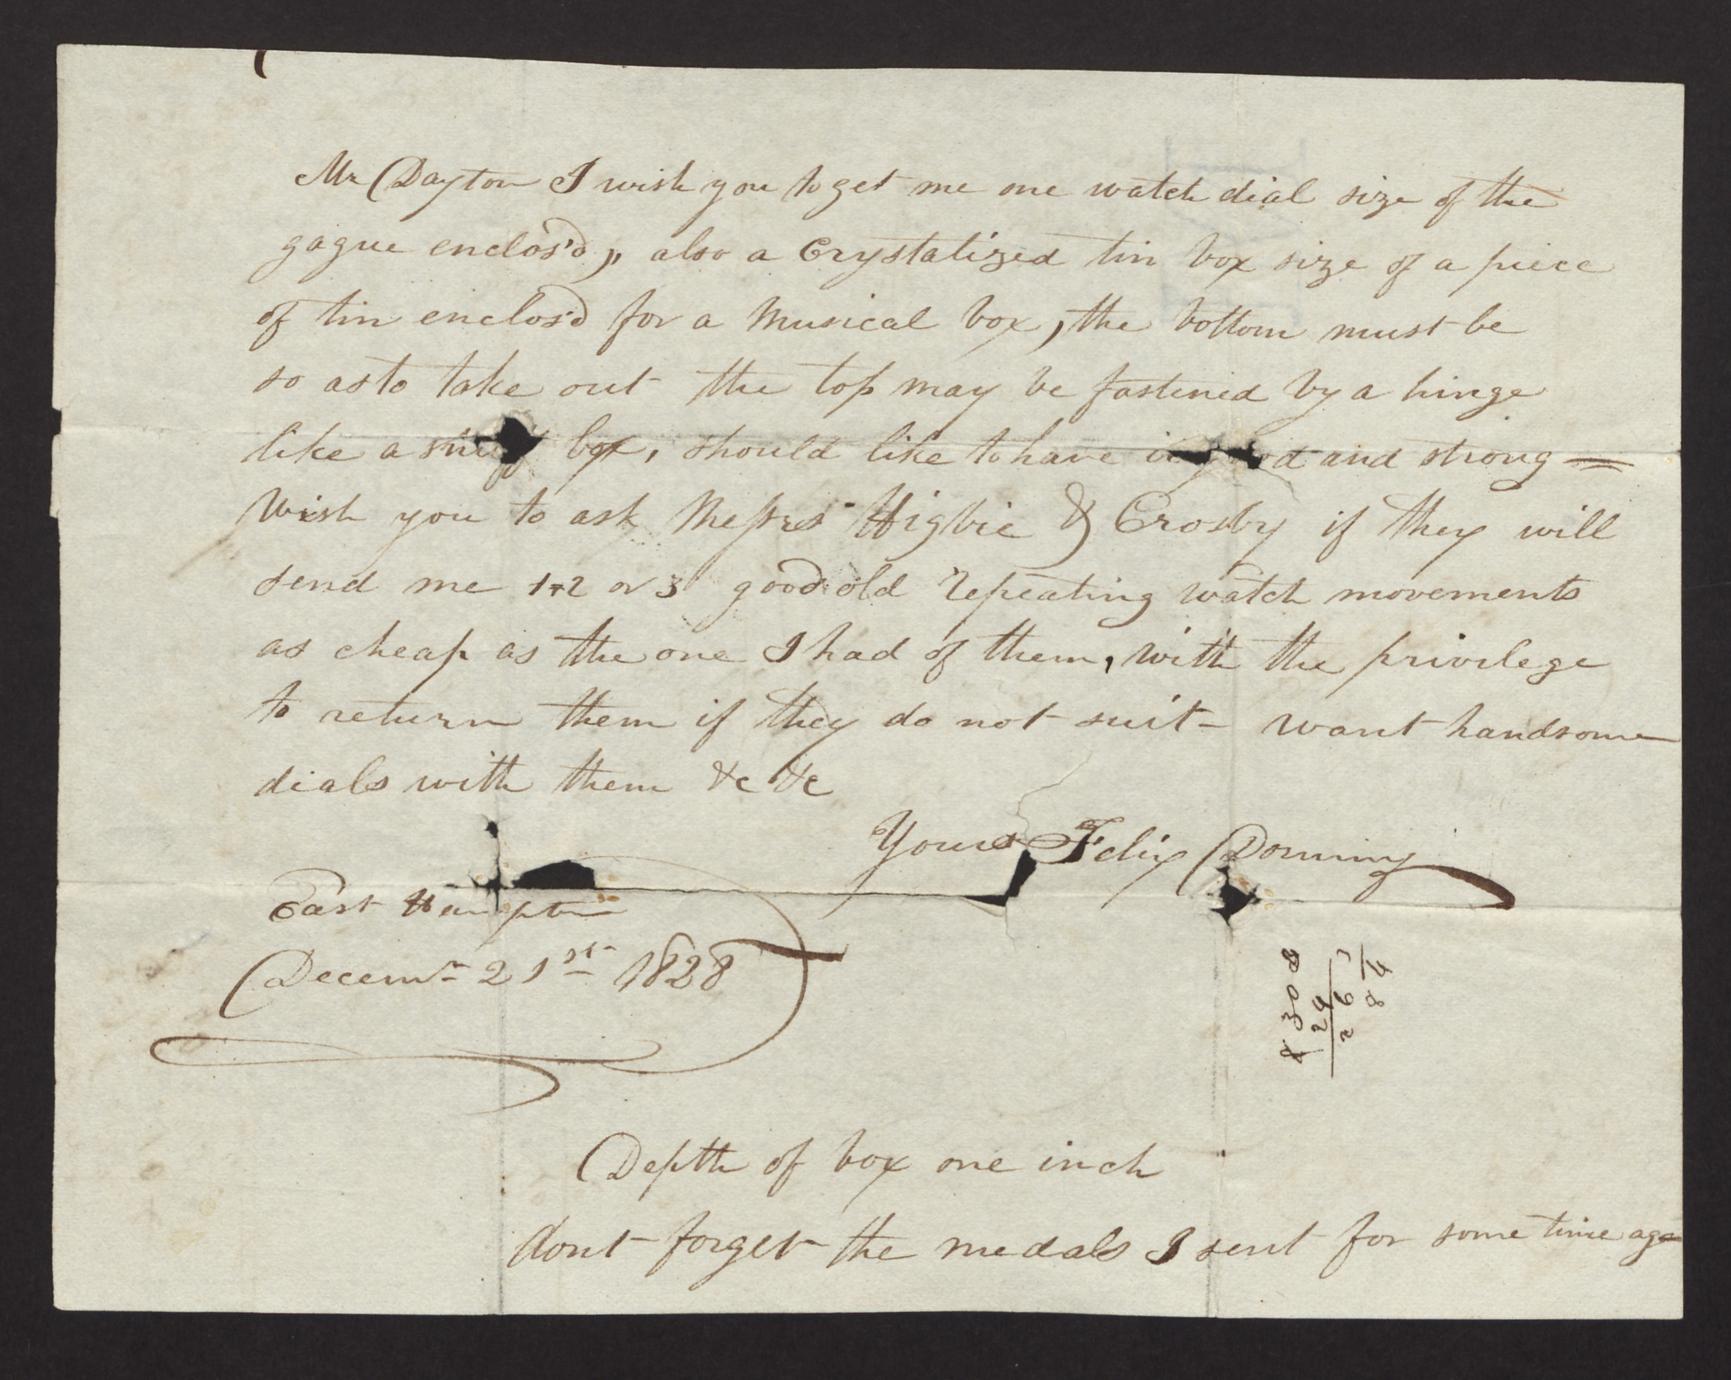 Mr Dayton I wish you to get me one watch dial size of the
gague enclos'd,, also a Crystalized tin box size of a piece
of tin enclos'd for a Musical box, the bottom must be
so as to take out the top may be fastened by a hinge
like a box, should like to have and strong =
Wish you to ask Messrs Higbie & Crosby if they will
send me 1, 2 or 3 good old repeating watch movements
as cheap as the one I had of them, with the privilege
to return them if they do not suit - want handsome
dials with them &c &c
Yours Felix Dominy
East Hampton
Decemr 21st 1828
Depth of box one inch
dont forget the medals I sent for some time ago